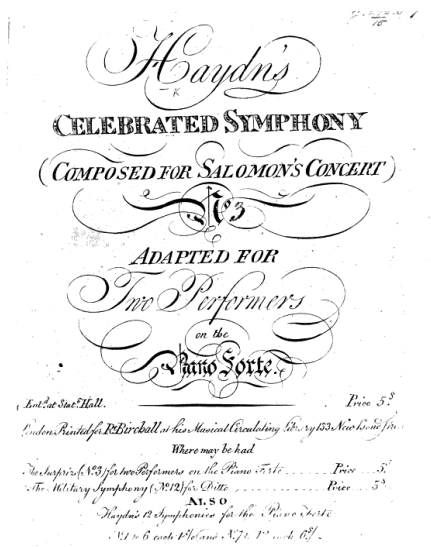 Haydn's
K
CELEBRATED SYMPHONY
(COMPOSED FOR SALOMON'S CONCERT)
No. 3
ADAPTED FOR
Two Performers
on the
Piano Forte.
Ent.d at Stat.rs Hall. Price 5.s
London Printed for R.t Birchall at his Musical Circulating Library 133 New Bond Street
Where may be had
The Surprize (No. 3) for two Performers on the Piano Forte Price 5.s
The Military Symphony (No. 12) for Ditto Price 5.s
ALSO
Haydn's 12 Symphonies for the Piano Forte
No. 1 to 6 each and No. 7 to 12 each 6.s